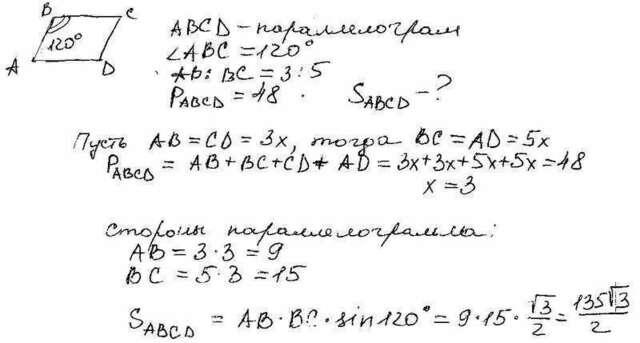 B C
120°
A D
ABCD - параллелограм
∠ABC = 120°
AB : BC = 3 : 5
P_ABCD = 48. S_ABCD - ?
Пусть AB = CD = 3x, тогда BC = AD = 5x
P_ABCD = AB + BC + CD + AD = 3x + 3x + 5x + 5x = 48
x = 3
Стороны параллелограмма:
AB = 3 · 3 = 9
BC = 5 · 3 = 15
S_ABCD = AB · BC · sin 120° = 9 · 15 · √3/2 = 135√3/2